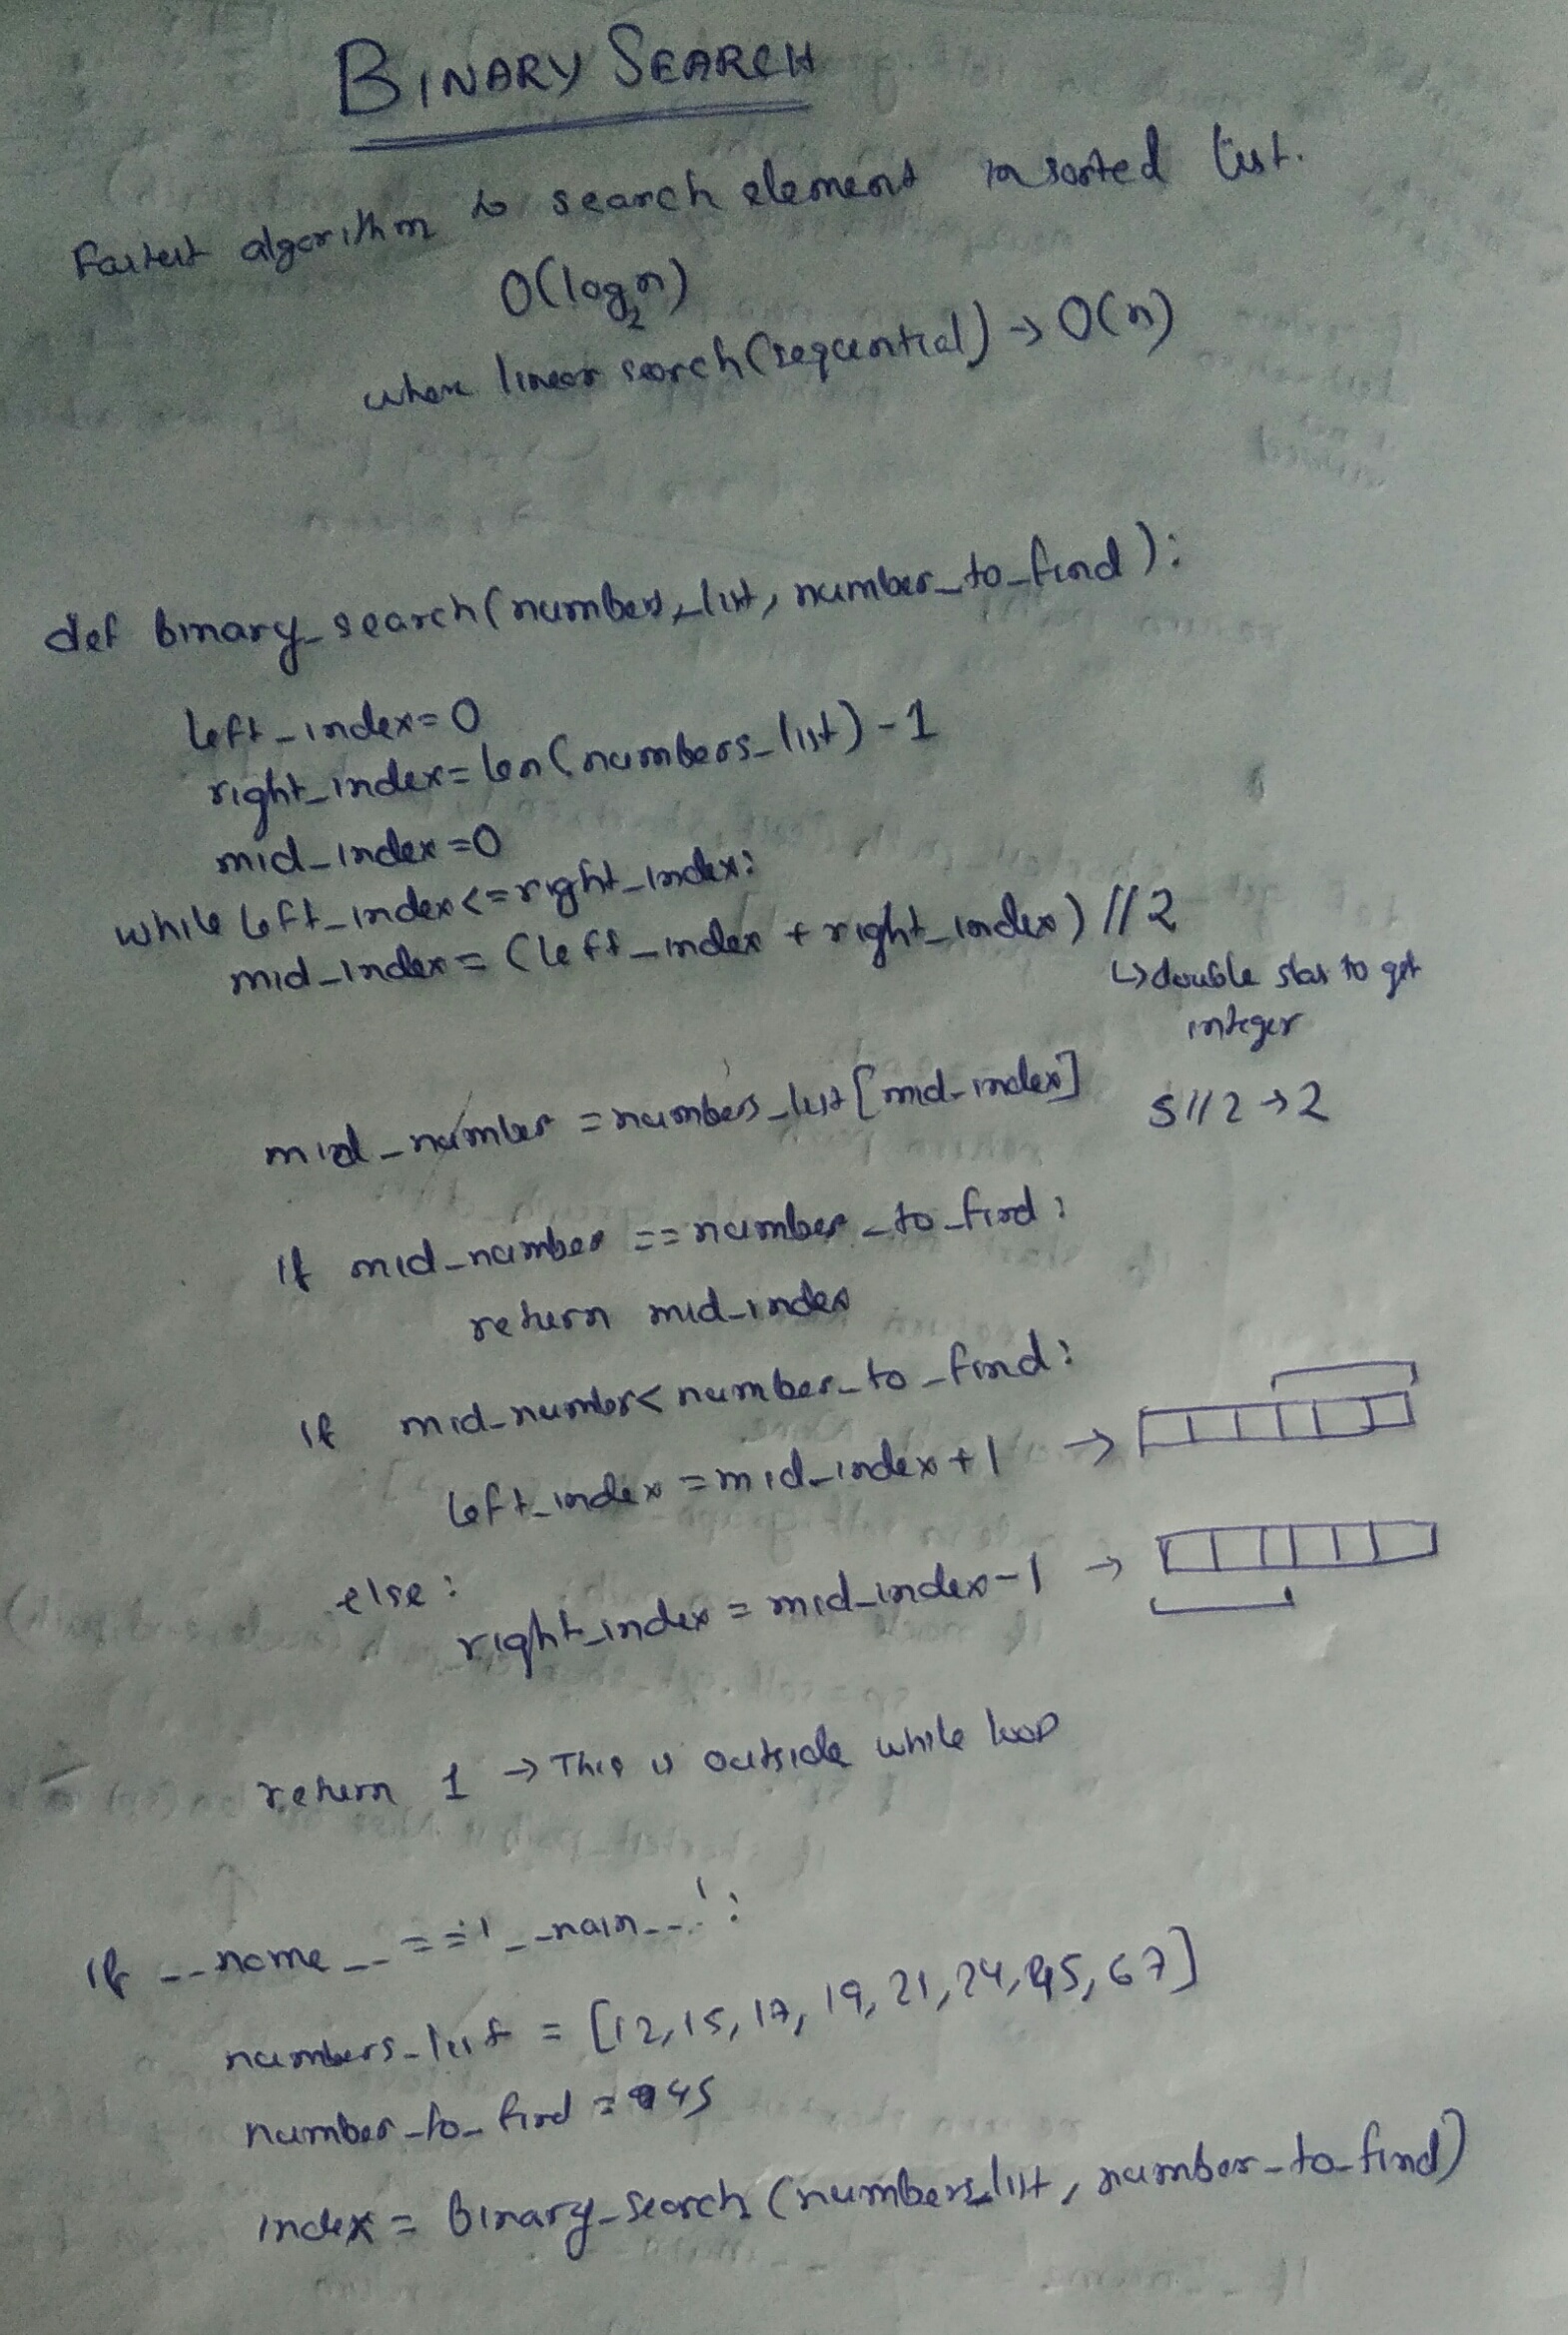 BINARY SEARCH
Fastest algorithm to search element in sorted list.
O(log₂n)
where linear search (sequential) → O(n)
def binary_search(numbers_list, number_to_find):
left_index=0
right_index=len(numbers_list)-1
mid_index=0
while left_index<=right_index:
mid_index=(left_index + right_index)//2
↳ double slas to get
integer
mid_number = numbers_list[mid_index]
5//2→2
if mid_number == number_to_find:
return mid_index
if mid_number< number_to_find:
left_index = mid_index+1 →
else:
right_index = mid_index-1 →
return 1 → This is outside while loop
if __name__=='__main__':
numbers_list = [12,15,17,19,21,24,45,67]
number_to_find = 45
index = binary_search(numbers_list, number_to_find)